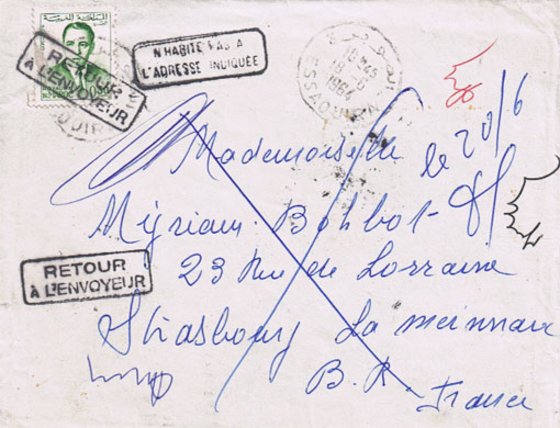 N'HABITE PAS A
L'ADRESSE INDIQUÉE
RETOUR
A L'ENVOYEUR
ESSAOUIRA
1964
Mademoiselle
le 20/6
Myriam Bohbot
23 Rue de Lorraine
Strasbourg La meinau
B. R. France
RETOUR
À L'ENVOYEUR